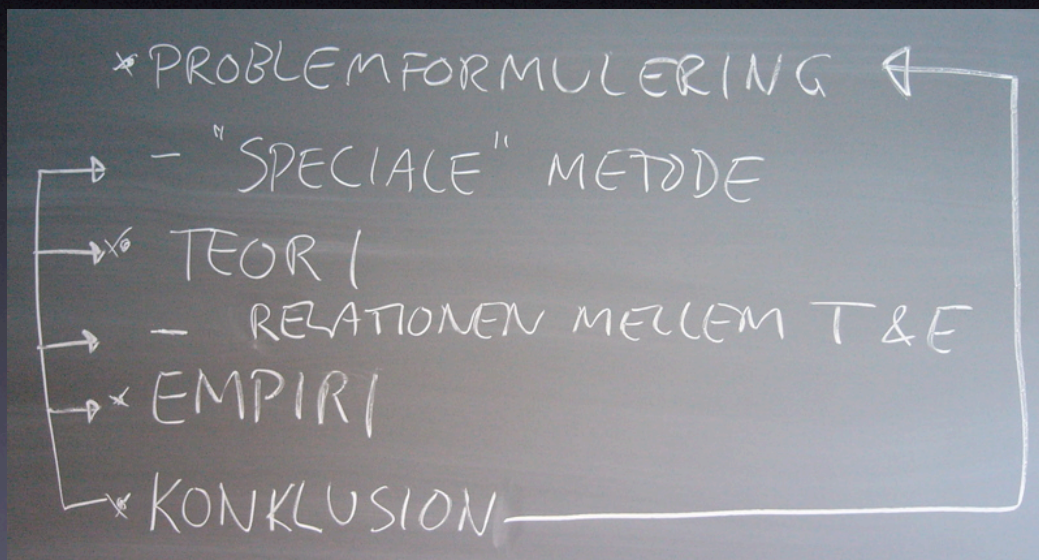 * PROBLEMFORMULERING
- "SPECIALE" METODE
* TEORI
- RELATIONEN MELLEM T & E
* EMPIRI
* KONKLUSION